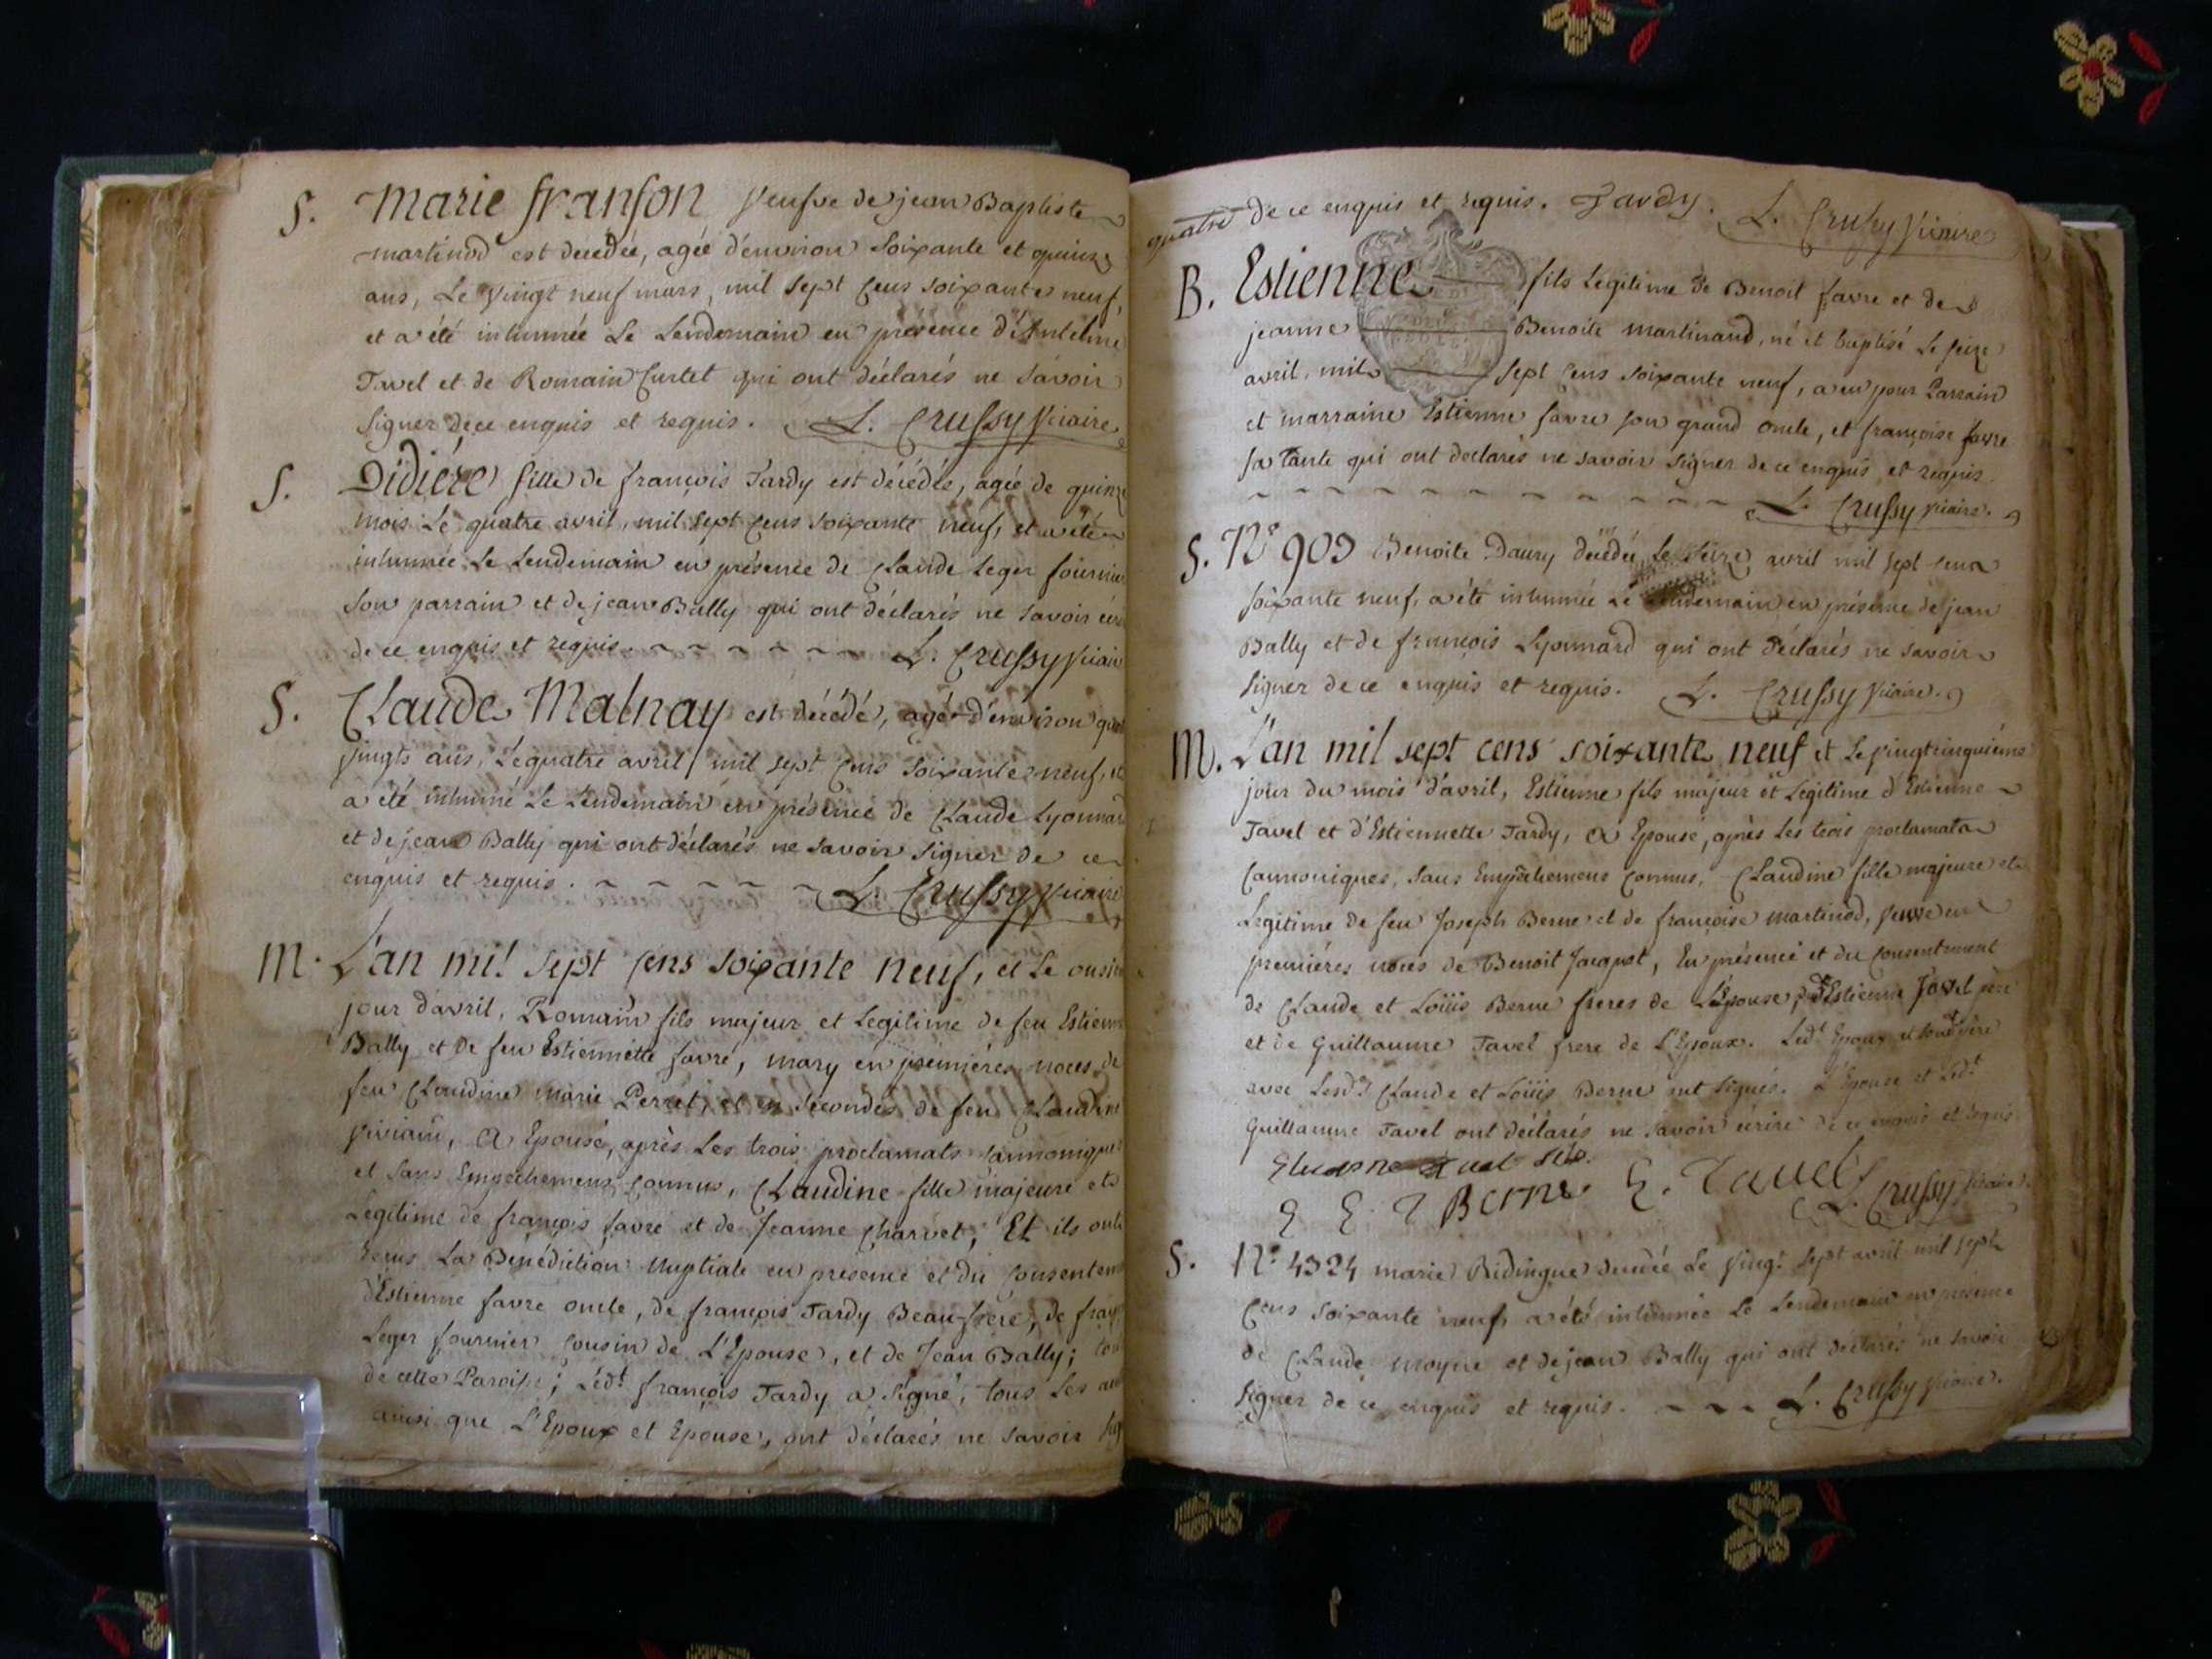 S. Marie franson Veufve de jean Baptiste
martinod est décédée, agée d'environ Soixante et quinze
ans, Le Vingt neuf mars, mil Sept Cens soixante neuf,
et a été inhumée Le Lendemain en présence d'Antelme
Tavel et de Romain Curtet qui ont déclarés ne savoir
signer de ce enquis et requis. L. Crussy Vicaire
S. Didiére fille de françois Tardy est décédée, agée de quinze
mois Le quatre avril, mil Sept Cens soixante neuf, et a été
inhumée Le Lendemain en présence de Claude Leger fournier
son parrain et de jean Bally qui ont déclarés ne savoir
de ce enquis et requis. L. Crussy Vicaire
S. Claude Malnay est décédé, agé d'environ
Vingts ans, Le quatre avril mil sept Cens soixante neuf, et
a été inhumé Le Lendemain en présence de Claude Lyonnard
et de jean Bally qui ont déclarés ne savoir signer de ce
enquis et requis. L. Crussy Vicaire
M. L'an mil sept Cens soixante neuf, et Le
jour d'avril, Romain fils majeur et Legitime de feu Estienne
Bally et de feu Estiennette favre, mary en premiéres noces de
feu Claudine marie Perret, et en secondes de feu Claudine
Viviant, a Epousé, après Les trois proclamats cannoniques
et sans Empechemens connus, Claudine fille majeure et
Legitime de françois favre et de Jeanne Charvet; Et ils ont
recus La Bénédiction Nuptiale en presence et du consentement
d'Estienne favre oncle, de françois Tardy Beau-frere, de
Leger fournier cousin de L'Epouse, et de Jean Bally;
de cette Paroisse; Led.t françois Tardy a Signé, tous Les
ainsi que L'Epoux et Epouse, ont déclarés ne savoir
de ce enquis et requis. Tardy. L. Crussy Vicaire
B. Estienne fils Legitime de Benoit favre et de
jeanne Benoite martinand, né et baptisé Le seize
avril, mil sept Cens soixante neuf, a eu pour Parrain
et marraine Estienne favre son grand oncle, et françoise favre
sa tante qui ont déclarés ne savoir signer de ce enquis et requis.
L. Crussy vicaire.
S. N.o 903 Benoite Daury décédée Le seize avril mil sept cens
soixante neuf, a été inhumée Le Lendemain en présence de jean
Bally et de françois Lyonnard qui ont déclarés ne savoir
signer de ce enquis et requis. L. Crussy Vicaire.
M. L'an mil sept cens soixante neuf et Le vingt cinquiéme
jour du mois d'avril, Estienne fils majeur et Légitime d'Estienne
Tavel et d'Estiennette Tardy, a Epousé, après Les trois proclamats
Cannoniques, sans Empêchemens connus, Claudine fille majeure et
Legitime de feu Joseph Berne et de françoise martinod, veuve en
premiéres noces de Benoit Jacquet, En présence et du Consentement
de Claude et Loüis Berne freres de L'Epouse, d'Estienne Tavel pere
et de Guillaume Tavel frere de L'Epoux. Led.t Epoux et son pere
avec Lesd.ts Claude et Loüis Berne ont signés. L'Epouse et Led.t
Guillaume Tavel ont déclarés ne savoir écrire de ce enquis et requis
Berne E. Tavel L. Crussy Vicaire.
S. N.o 4324 marie Ridingue décédée Le vingt sept avril mil sept
Cens soixante neuf, a été inhumée Le Lendemain en présence
de Claude moyne et de jean Bally qui ont déclarés ne savoir
signer de ce enquis et requis. L. Crussy vicaire.